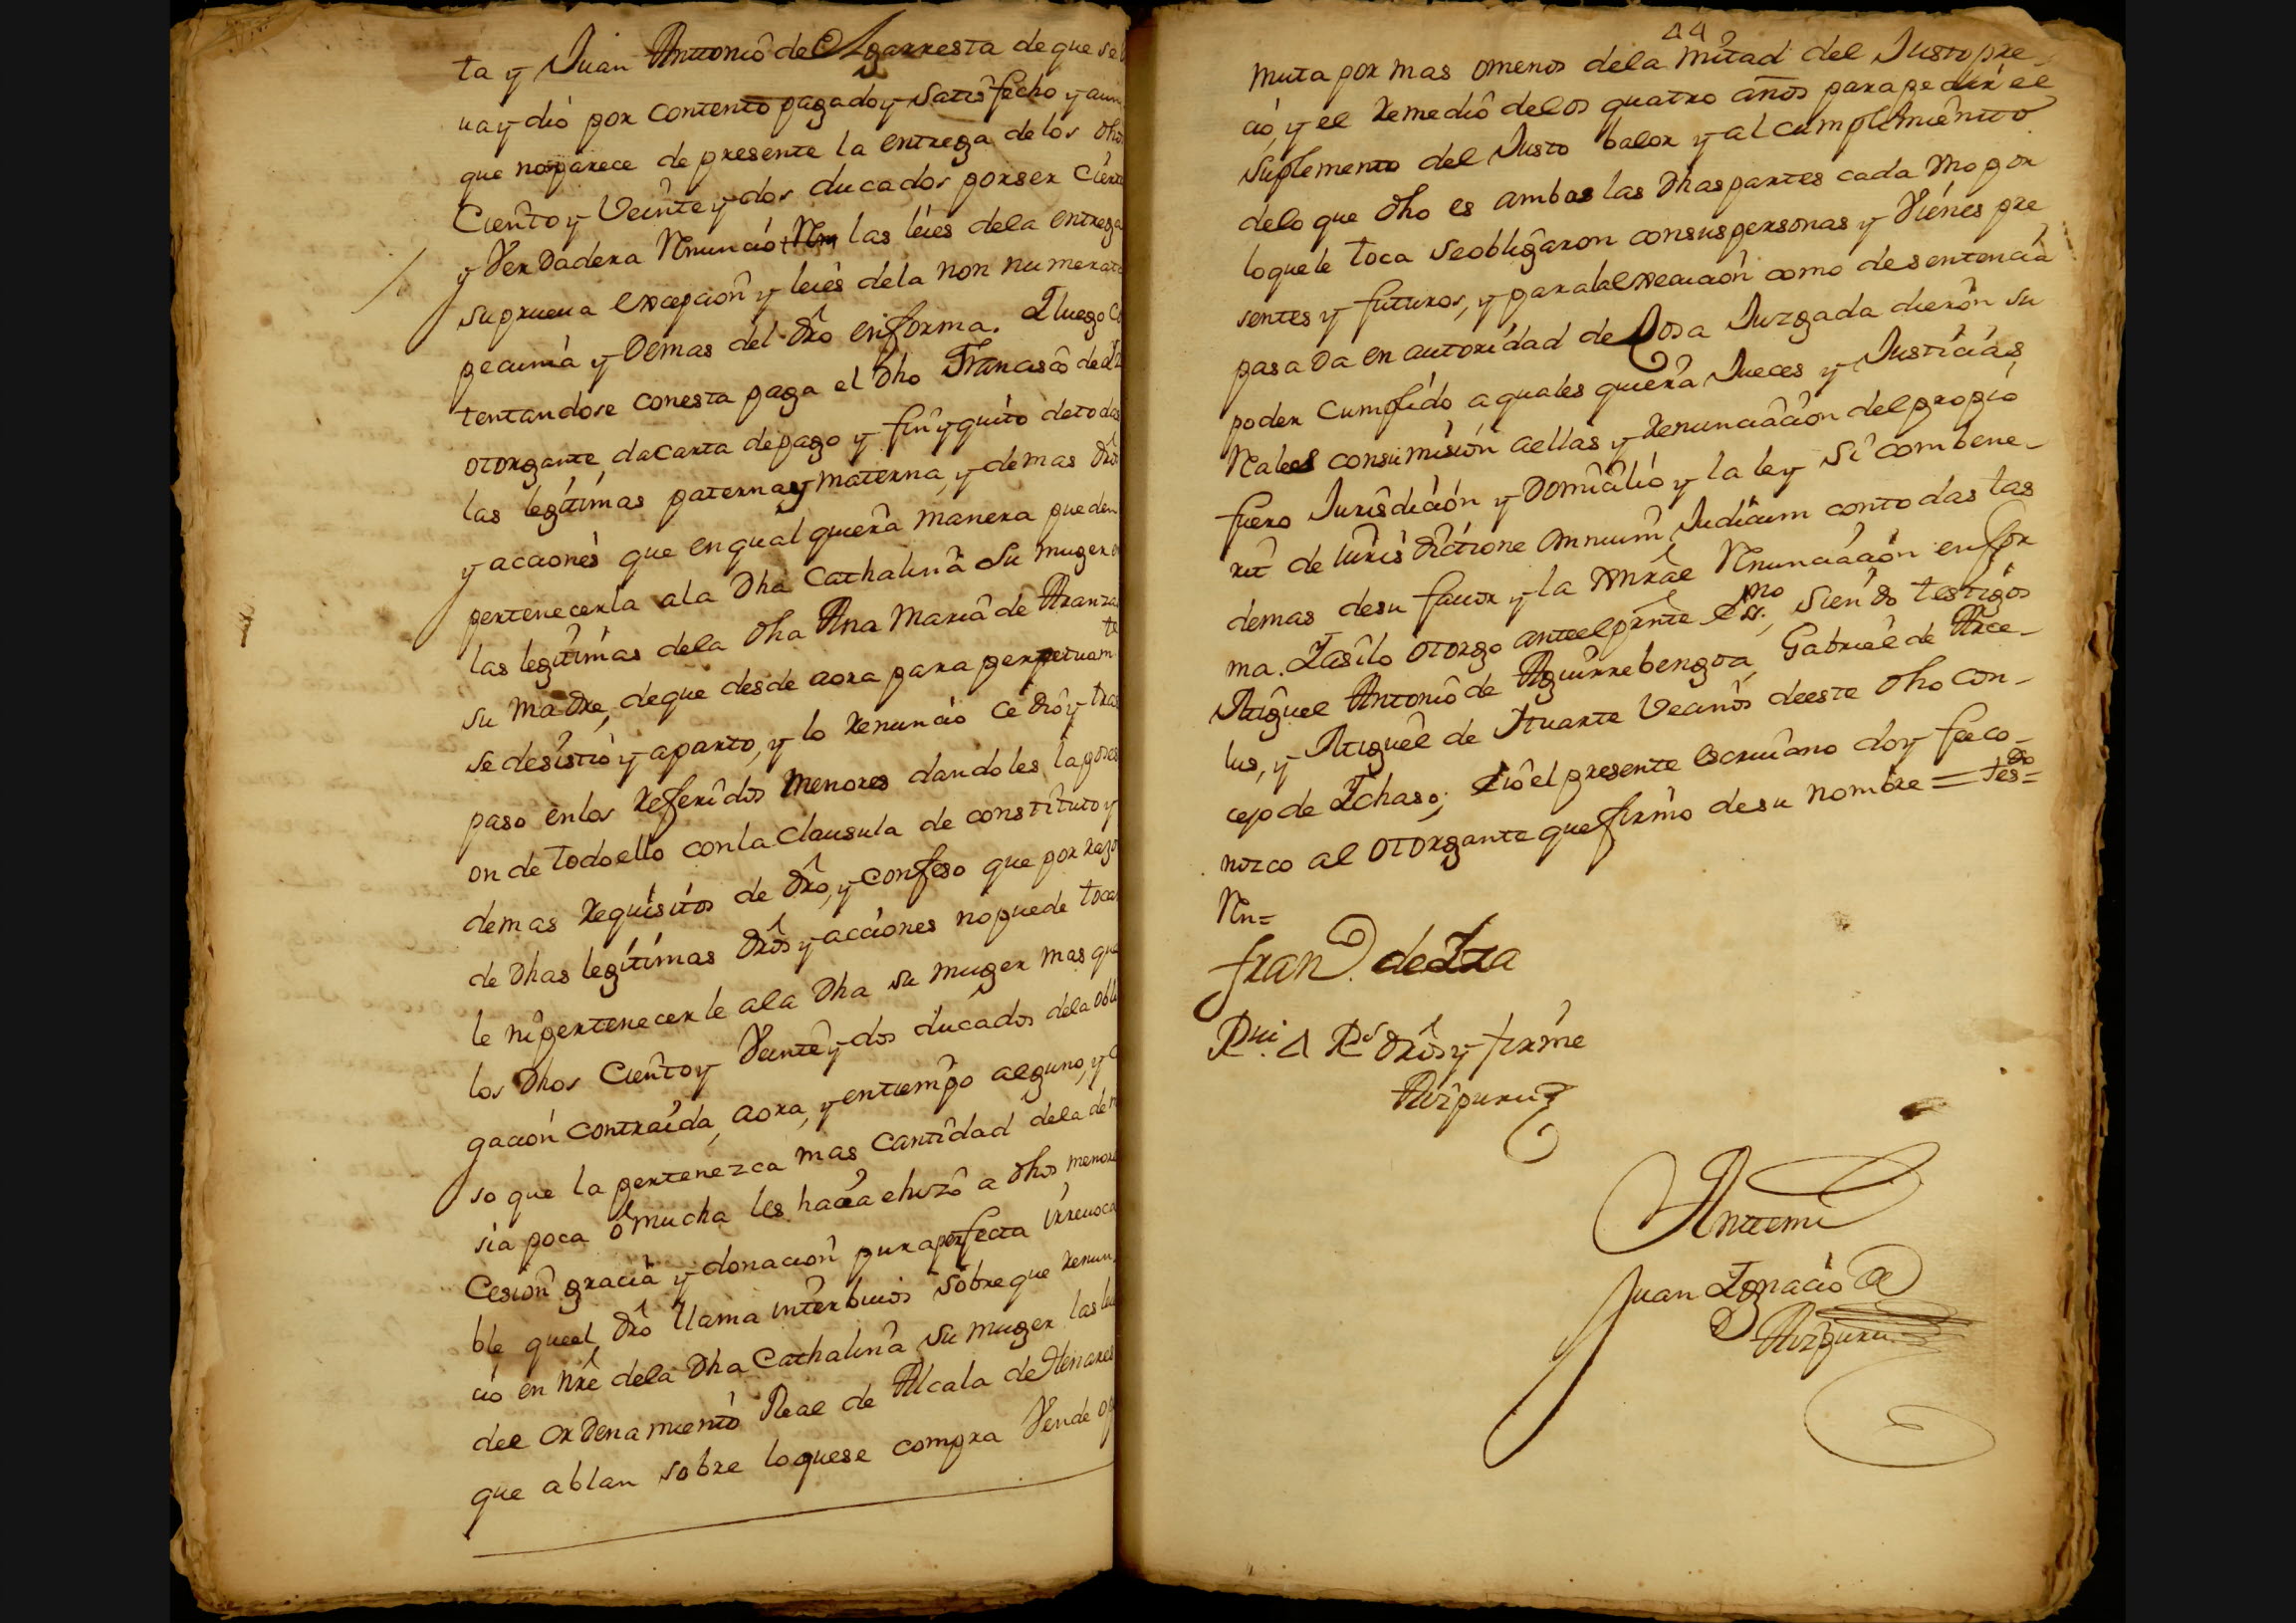 ta y Juan Antonio de Olgarresta de que se
ua y dio por contento pagado y satisfecho y aun
que no parece de presente la entrega de los dhos
Ciento y Veinte y dos ducados por ser Cierta
y Verdadera Renuncio las leies dela entrega
su prueua excepcion y leies dela non numerata
pecunia y demas del dro en forma. I luego
tentandose con esta paga el dho Francisco de Iza
otorgante, da carta de pago y fin y quito de todas
las legitimas paterna y materna, y demas dros
y acciones que en qual quiera manera pueden
pertenecerla ala dha Cathalina su muger
las legitimas dela dha Ana Maria de Aranza
su madre, de que desde aora para perpetuam.te
se desistio y aparto, y lo renuncio cedio y tras
paso en los referidos menores dandoles la poses
on de todo ello con la clausula de constituto y
demas requisitos de dro, y confeso que por razo
de dhas legitimas dros y acciones no puede tocar
le ni pertenecerle ala dha su muger mas que
los dhos Ciento y Veinte y dos ducados dela obli
gacion contraida, aora, y en tiempo alguno, y
so que la pertenezca mas cantidad dela de
sia poca o mucha les hacia e hizo a dhos menores
Cesion gracia y donacion pura perfecta irreuoca
ble que el dro llama inter biuos sobre que renun
cio en nre dela dha Cathalina su muger las
del ordenamiento Real de Alcala de Henares
que ablan sobre lo que se compra Vende o
44
muta por mas o menos dela mitad del Justo pre-
cio, y el remedio de los quatro años para pedir el
suplemento del Justo balor y al cumplimiento
de lo que dho es ambas las dhas partes cada uno por
lo que le toca se obligaron con sus personas y Vienes pre
sentes y futuros, y para la execucion como de sentencia
pasada en autoridad de Cosa Juzgada dieron su
poder cumplido a quales quiera Jueces y Justicias
Reales con sumision a ellas y renunciacion del propio
fuero Jurisdicion y Domicilio y la ley Si combene-
rit de iuris dictione omnium Judicum con todas las
demas de su fauor y la Gnrâl Renunciacion en for
ma. I asi lo otorgo ante el prnte Ess.no, siendo testigos
Miguel Antonio de Aguirrebengoa, Gabriel de Arce-
lus, y Miguel de Ituarte Vecinos de este dho con-
cejo de Ichaso; e io el presente escriuano doy fee co-
nozco al otorgante que firmo de su nombre = tes.do =
Rn=
fran.co de Iza
R.ui 4 R.s dros y firme
Aizpuru
Ante mi
Juan Ignacio de
Aizpuru